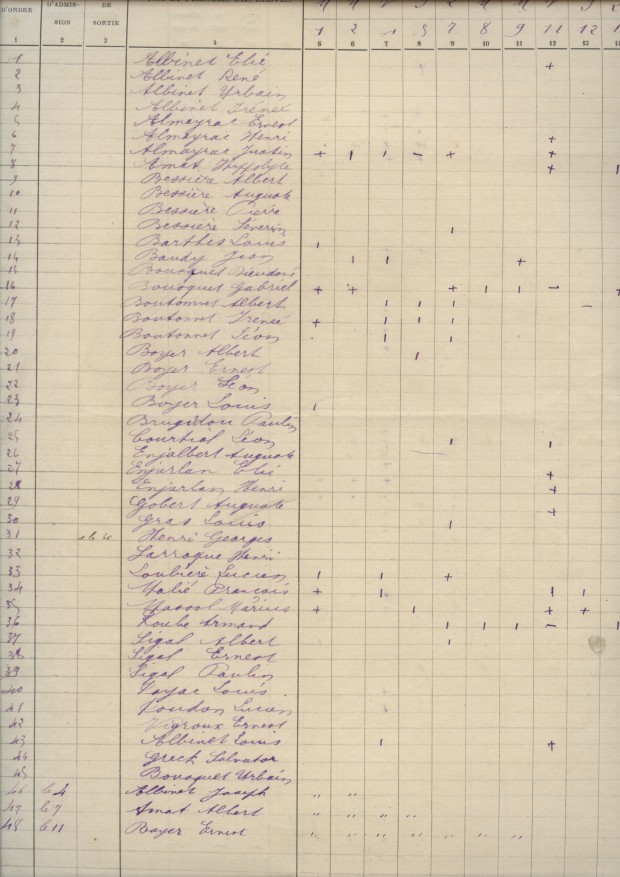 D'ORDRE D'ADMIS- DE
SION SORTIE
1 2 5 7 8 9 11 12
1 2 3 4 5 6 7 8 9 10 11 12 13
1 Albinet Elié +
2 Albinet René
3 Albinet Urbain
4 Albinet Irénée
5 Almayrac Ernest
6 Almayrac Henri +
7 Almayrac Justin + 1 1 - + +
8 Amat Hyppolyte + 1
9 Bessière Albert
10 Bessière Auguste
11 Bessière Pierre
12 Bessière Séverin 1
13 Barthes Louis 1
14 Baudy Jean 1 1 +
15 Bousquet Dieudoné
16 Bousquet Gabriel + + + 1 1 - +
17 Boutonnet Albert 1 1 1 -
18 Boutonnet Irénée + 1 1 1
19 Boutonnet Léon 1 1
20 Boyer Albert 1
21 Boyer Ernest
22 Boyer Léon
23 Boyer Louis 1
24 Brugidou Paulin
25 Courtial Léon 1 1
26 Enjalbert Auguste
27 Enjarlan Elié +
28 Enjarlan Henri +
29 Gobert Auguste +
30 Gras Louis 1
31 Henri Georges
32 Larroque Henri
33 Loubière Lucien 1 1 +
34 Malié François + 1 1 1
35 Massol Marius + 1 + +
36 Roube Armand 1 1 1 - 1
37 Sigal Albert 1
38 Sigal Ernest
39 Sigal Paulin
40 Louis
41 Lucien
42 Vigroux Ernest
43 Albinet Louis 1 +
44 Greck Salvator
45 Bousquet Urbain
46 le 4 Albinet Joseph " "
47 le 7 Amat Albert " " " "
48 le 11 Boyer Ernest " " " " " " "